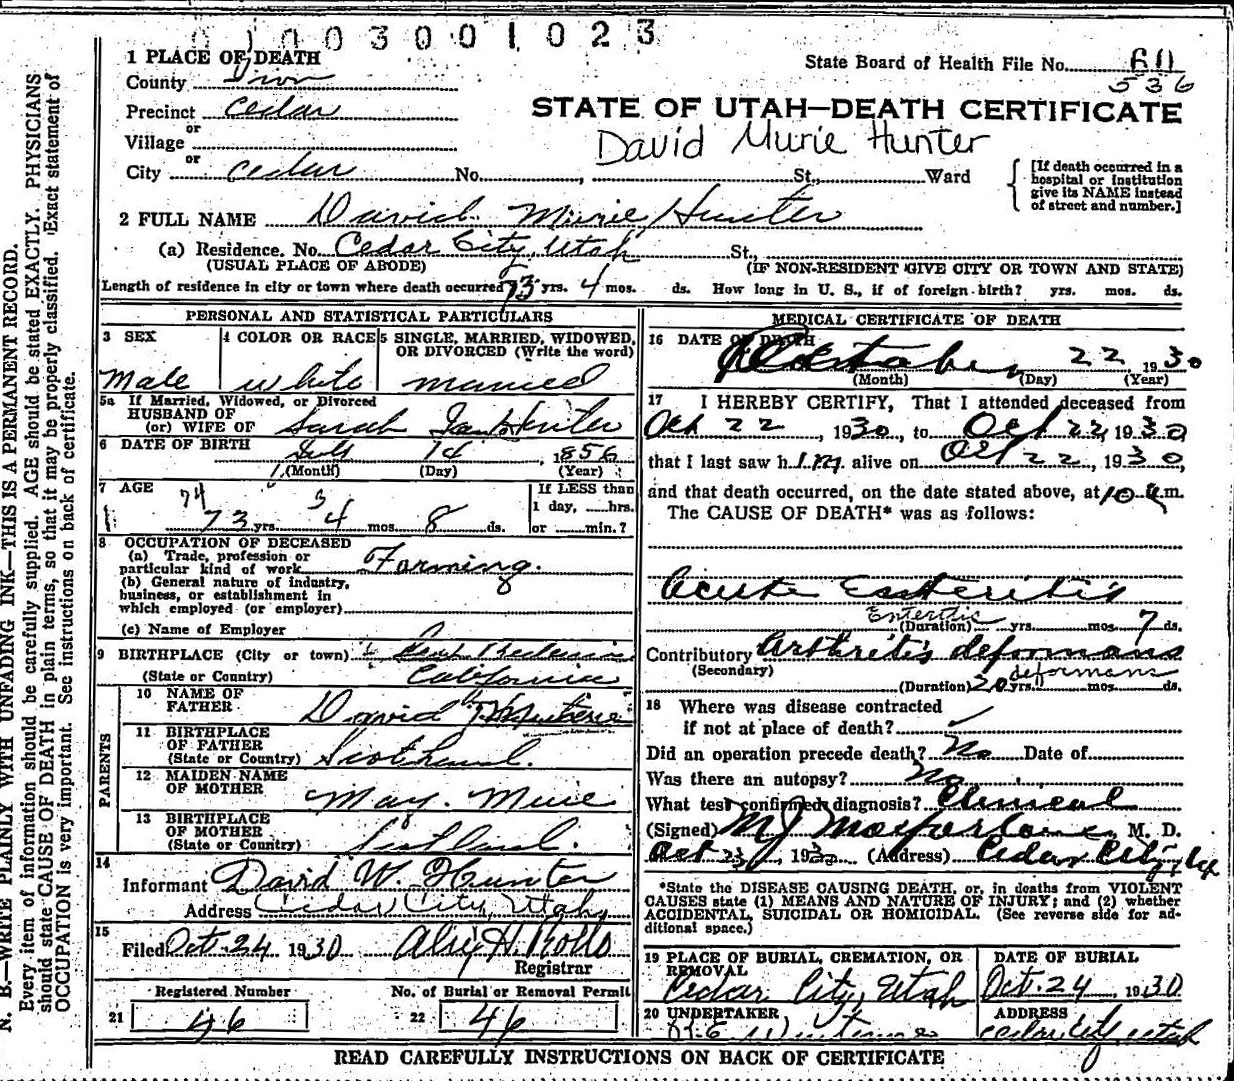 0 1 0 0 3 0 0 1 0 2 3
1 PLACE OF DEATH
State Board of Health File No. 60
536
County Iron
Precinct Cedar
STATE OF UTAH—DEATH CERTIFICATE
or
Village
David Murie Hunter
or
City Cedar No. , St., Ward
[If death occurred in a hospital or institution give its NAME instead of street and number.]
2 FULL NAME David Murie Hunter
(a) Residence. No. Cedar City, Utah St.,
(USUAL PLACE OF ABODE) (IF NON-RESIDENT GIVE CITY OR TOWN AND STATE)
Length of residence in city or town where death occurred 73 yrs. 4 mos. ds. How long in U. S., if of foreign birth? yrs. mos. ds.
PERSONAL AND STATISTICAL PARTICULARS
3 SEX 4 COLOR OR RACE 5 SINGLE, MARRIED, WIDOWED,
OR DIVORCED (Write the word)
Male white married
5a If Married, Widowed, or Divorced
HUSBAND OF
(or) WIFE OF Sarah Hunter
6 DATE OF BIRTH
14 1856
(Month) (Day) (Year)
7 AGE
74 3
73 yrs. 4 mos. 8 ds.
If LESS than
1 day, hrs.
or min.?
8 OCCUPATION OF DECEASED
(a) Trade, profession or
particular kind of work Farming.
(b) General nature of industry,
business, or establishment in
which employed (or employer)
(c) Name of Employer
9 BIRTHPLACE (City or town)
(State or Country) California
PARENTS
10 NAME OF
FATHER David
11 BIRTHPLACE
OF FATHER
(State or Country) Scotland.
12 MAIDEN NAME
OF MOTHER May. Murie
13 BIRTHPLACE
OF MOTHER
(State or Country) Scotland.
14
Informant David W. Hunter
Address Cedar City, Utah
15
Filed Oct. 24 1930
Registrar
Registered Number No. of Burial or Removal Permit
21 46 22 46
MEDICAL CERTIFICATE OF DEATH
16 DATE OF DEATH
October 22 1930
(Month) (Day) (Year)
17 I HEREBY CERTIFY, That I attended deceased from
Oct 22, 1930, to Oct 22, 1930
that I last saw him alive on Oct 22, 1930,
and that death occurred, on the date stated above, at 10 a.m.
The CAUSE OF DEATH* was as follows:
Acute Enteritis
Enteritis
(Duration) yrs. mos. 7 ds.
Contributory Arthritis deformans
(Secondary) deformans
(Duration) 20 yrs. mos. ds.
18 Where was disease contracted
if not at place of death?
Did an operation precede death? No Date of
Was there an autopsy? No
What test confirmed diagnosis? Clinical
(Signed) M J Macfarlane, M. D.
Oct 23, 1930 (Address) Cedar City, Ut
*State the DISEASE CAUSING DEATH, or, in deaths from VIOLENT
CAUSES state (1) MEANS AND NATURE OF INJURY; and (2) whether
ACCIDENTAL, SUICIDAL OR HOMICIDAL. (See reverse side for ad-
ditional space.)
19 PLACE OF BURIAL, CREMATION, OR
REMOVAL
Cedar City, Utah
DATE OF BURIAL
Oct. 24, 1930
20 UNDERTAKER
ADDRESS
Cedar City, Utah
READ CAREFULLY INSTRUCTIONS ON BACK OF CERTIFICATE
N. B.—WRITE PLAINLY WITH UNFADING INK—THIS IS A PERMANENT RECORD.
Every item of information should be carefully supplied. AGE should be stated EXACTLY. PHYSICIANS
should state CAUSE OF DEATH in plain terms, so that it may be properly classified. Exact statement of
OCCUPATION is very important. See instructions on back of certificate.